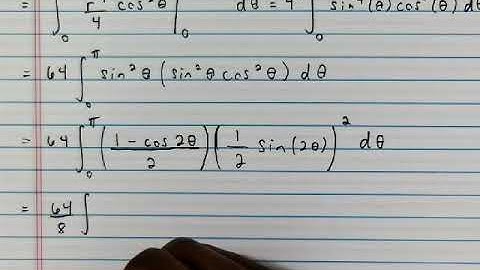 = ∫₀ r⁴/4 cos²θ |₀ dθ = 4 ∫₀ sin⁴(θ) cos²(θ) dθ
= 64 ∫₀^π sin²θ (sin²θ cos²θ) dθ
= 64 ∫₀^π ((1 - cos 2θ)/2) (1/2 sin(2θ))² dθ
= 64/8 ∫